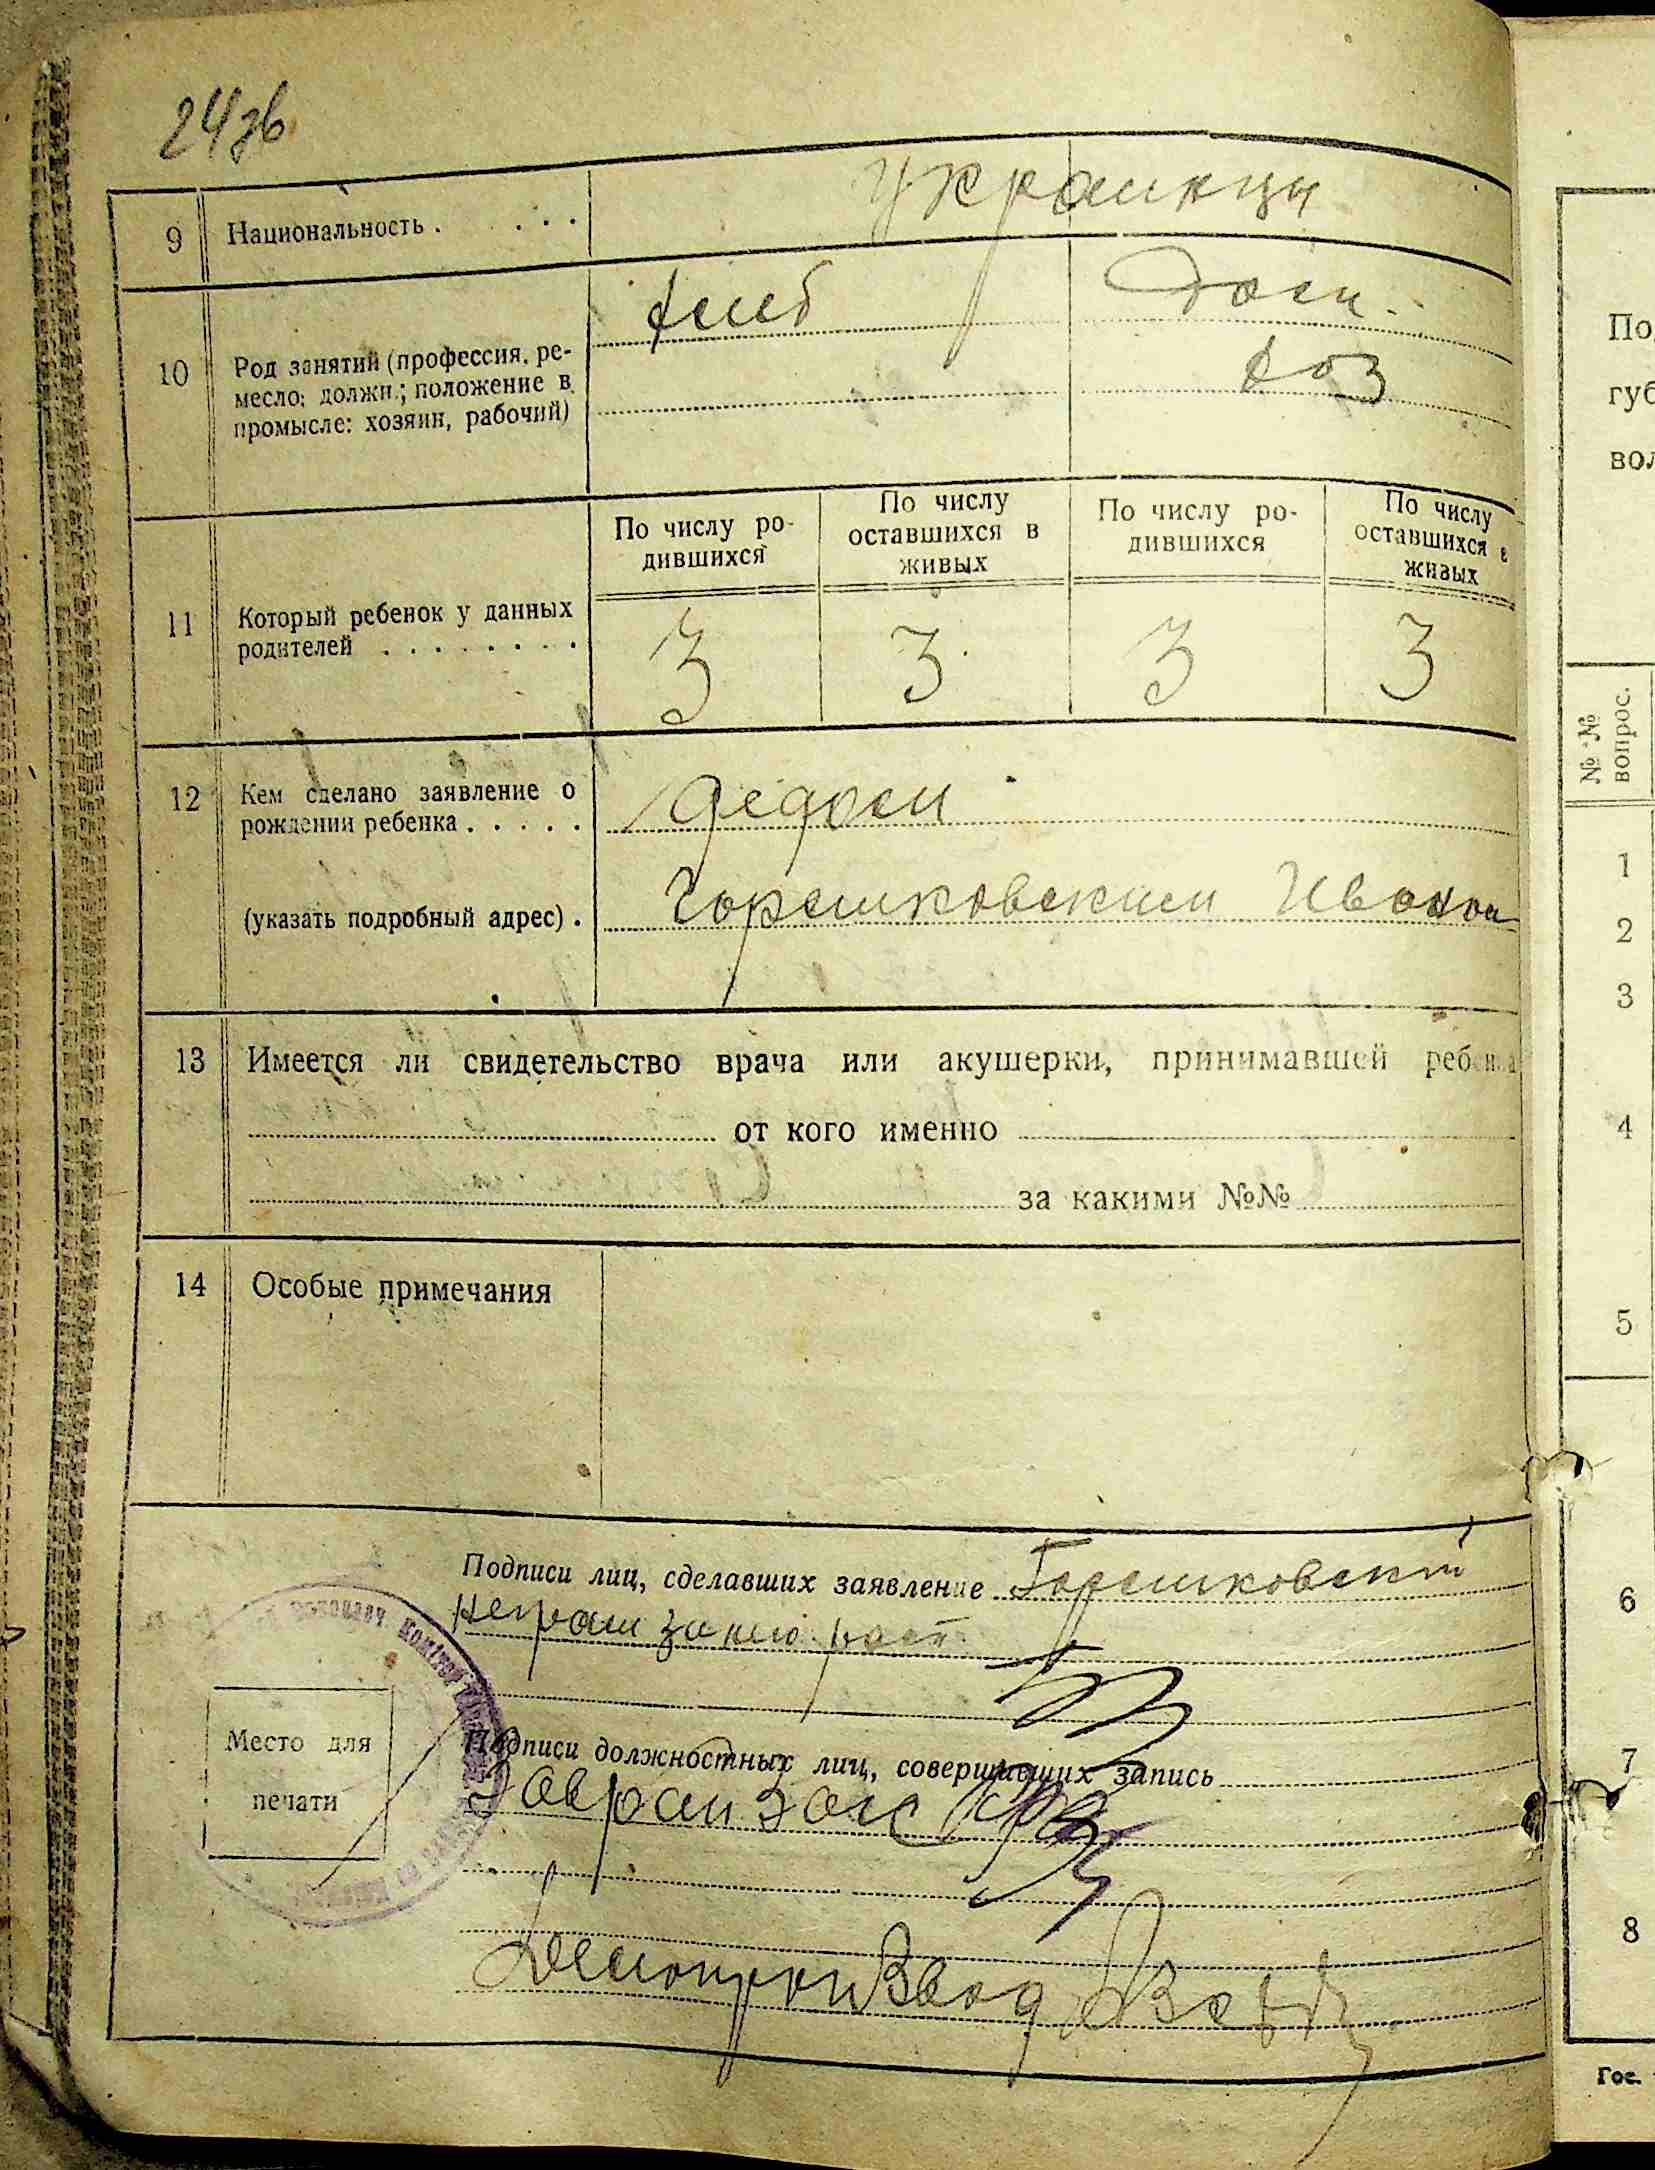 24зв
9 Национальность . . . . Украинцы
10 Род занятий (профессия, ре-
месло; должн.; положение в
промысле: хозяин, рабочий)
хлеб Дом.
хоз
11 Который ребенок у данных
родителей . . . . . . . .
По числу ро-
дившихся
По числу
оставшихся в
живых
По числу ро-
дившихся
По числу
оставшихся в
живых
3 3 3 3
12 Кем сделано заявление о
рождении ребенка . . . . .
Дедом
(указать подробный адрес) . Горемковским Иваном
13 Имеется ли свидетельство врача или акушерки, принимавшей ребенка
от кого именно
за какими №№
14 Особые примечания
Подписи лиц, сделавших заявление Горемковский
неграм за него расп
Место для
печати
Подписи должностных лиц, совершивших запись
Завграмзагс
Делопроизвод
По
губ
вол
№ №
вопрос.
1
2
3
4
5
6
7
8
Гос.